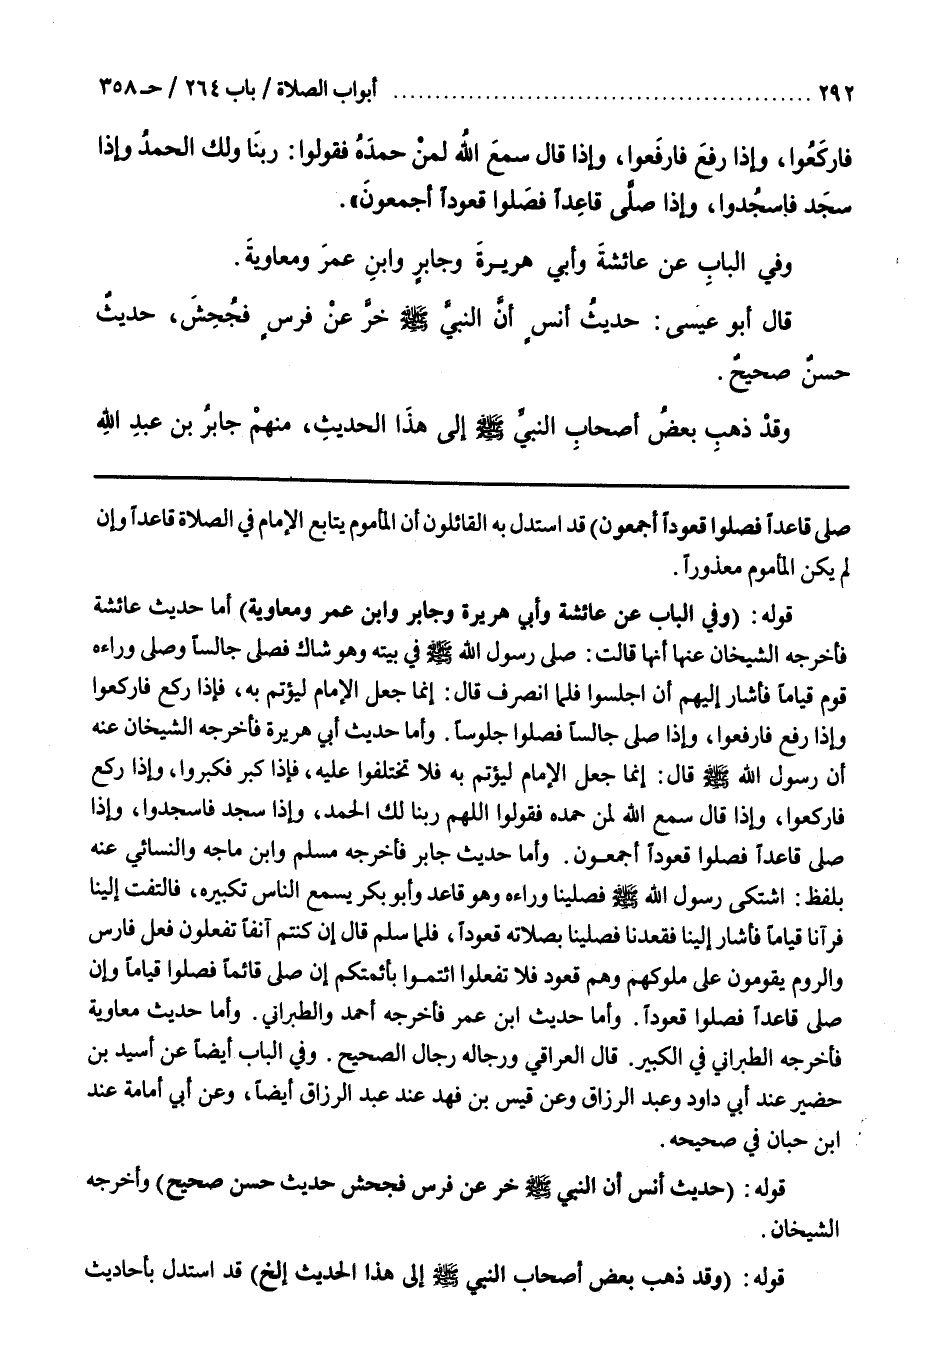 ٢٩٢ ........................................ أبواب الصلاة / باب ٢٦٤ / حـ ٣٥٨
فاركَعُوا، وإذا رفعَ فارفَعوا، وإذا قال سمعَ اللهُ لمنْ حمدَهُ فقولوا: ربنَا ولك الحمدُ وإذا
سجَد فاسجُدوا، وإذا صلَّى قاعِداً فصَلوا قعوداً أجمعونَ».
وفي البابِ عن عائشةَ وأبي هريرةَ وجابرٍ وابنِ عمرَ ومعاويةَ.
قال أبو عيسَى: حديثُ أنسٍ أنَّ النبيَّ ﷺ خرَّ عنْ فرسٍ فجُحِشَ، حديثٌ
حسنٌ صحيحٌ.
وقدْ ذهبِ بعضُ أصحابِ النبيِّ ﷺ إلى هذَا الحديثِ، منهمْ جابرُ بن عبدِ اللهِ
صلى قاعداً فصلوا قعوداً أجمعون) قد استدل به القائلون أن المأموم يتابع الإمام في الصلاة قاعداً وإن
لم يكن المأموم معذوراً.
قوله: (وفي الباب عن عائشة وأبي هريرة وجابر وابن عمر ومعاوية) أما حديث عائشة
فأخرجه الشيخان عنها أنها قالت: صلى رسول الله ﷺ في بيته وهو شاك فصلى جالساً وصلى وراءه
قوم قياماً فأشار إليهم أن اجلسوا فلما انصرف قال: إنما جعل الإمام ليؤتم به، فإذا ركع فاركعوا
وإذا رفع فارفعوا، وإذا صلى جالساً فصلوا جلوساً. وأما حديث أبي هريرة فأخرجه الشيخان عنه
أن رسول الله ﷺ قال: إنما جعل الإمام ليؤتم به فلا تختلفوا عليه، فإذا كبر فكبروا، وإذا ركع
فاركعوا، وإذا قال سمع الله لمن حمده فقولوا اللهم ربنا لك الحمد، وإذا سجد فاسجدوا، وإذا
صلى قاعداً فصلوا قعوداً أجمعـون. وأما حديث جابر فأخرجه مسلم وابن ماجه والنسائي عنه
بلفظ: اشتكى رسول الله ﷺ فصلينا وراءه وهو قاعد وأبو بكر يسمع الناس تكبيره، فالتفت إلينا
فرآنا قياماً فأشار إلينا فقعدنا فصلينا بصلاته قعوداً، فلما سلم قال إن كنتم آنفاً تفعلون فعل فارس
والروم يقومون على ملوكهم وهم قعود فلا تفعلوا ائتمـوا بأئمتكم إن صلى قائماً فصلوا قياماً وإن
صلى قاعداً فصلوا قعوداً. وأما حديث ابن عمر فأخرجه أحمد والطبراني. وأما حديث معاوية
فأخرجه الطبراني في الكبير. قال العراقي ورجاله رجال الصحيح. وفي الباب أيضاً عن أسيد بن
حضير عند أبي داود وعبد الرزاق وعن قيس بن فهد عند عبد الرزاق أيضاً، وعن أبي أمامة عند
ابن حبان في صحيحه.
قوله: (حديث أنس أن النبي ﷺ خر عن فرس فجحش حديث حسن صحيح) وأخرجه
الشيخان.
قوله: (وقد ذهب بعض أصحاب النبي ﷺ إلى هذا الحديث إلخ) قد استدل بأحاديث